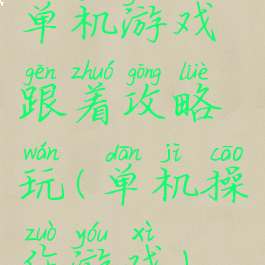 单机游戏
gēn zhuó gōng lüè
跟着攻略
wán dān jī cāo
玩(单机操
zuò yóu xì
作游戏)